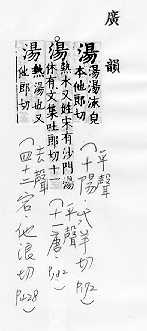 廣韻
湯 湯湯流皃
本他郎切
(平聲
十陽 式羊切 P.172)
湯 熱水又姓宋有沙門湯
休有文集吐郎切十
(平聲
十一唐, P.182)
湯 熱湯也又
他郎切
(去聲
四十二宕, 他浪切 P.428)